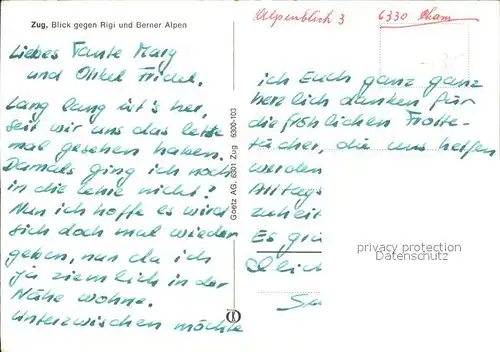 Zug, Blick gegen Rigi und Berner Alpen
Alpenblick 3 6330 Cham
Liebes Tante Mary
und Onkel Fridel.
Lang lang ist's her,
seit wir uns das letzte
mal gesehen haben.
Damals ging ich noch
in die Lehre nicht?
Nun ich hoffe es wird
sich doch mal wieder
geben, nun da ich
ja ziemlich in der
Nähe wohne.
Unterzwischen möchte
Goetz AG, 6301 Zug 6300-103
ich Euch ganz ganz
herzlich danken für
die fröhlichen Frotte-
tücher, die uns helfen
werden
Alltags
zuheit
Es grü
privacy protection
Datenschutz